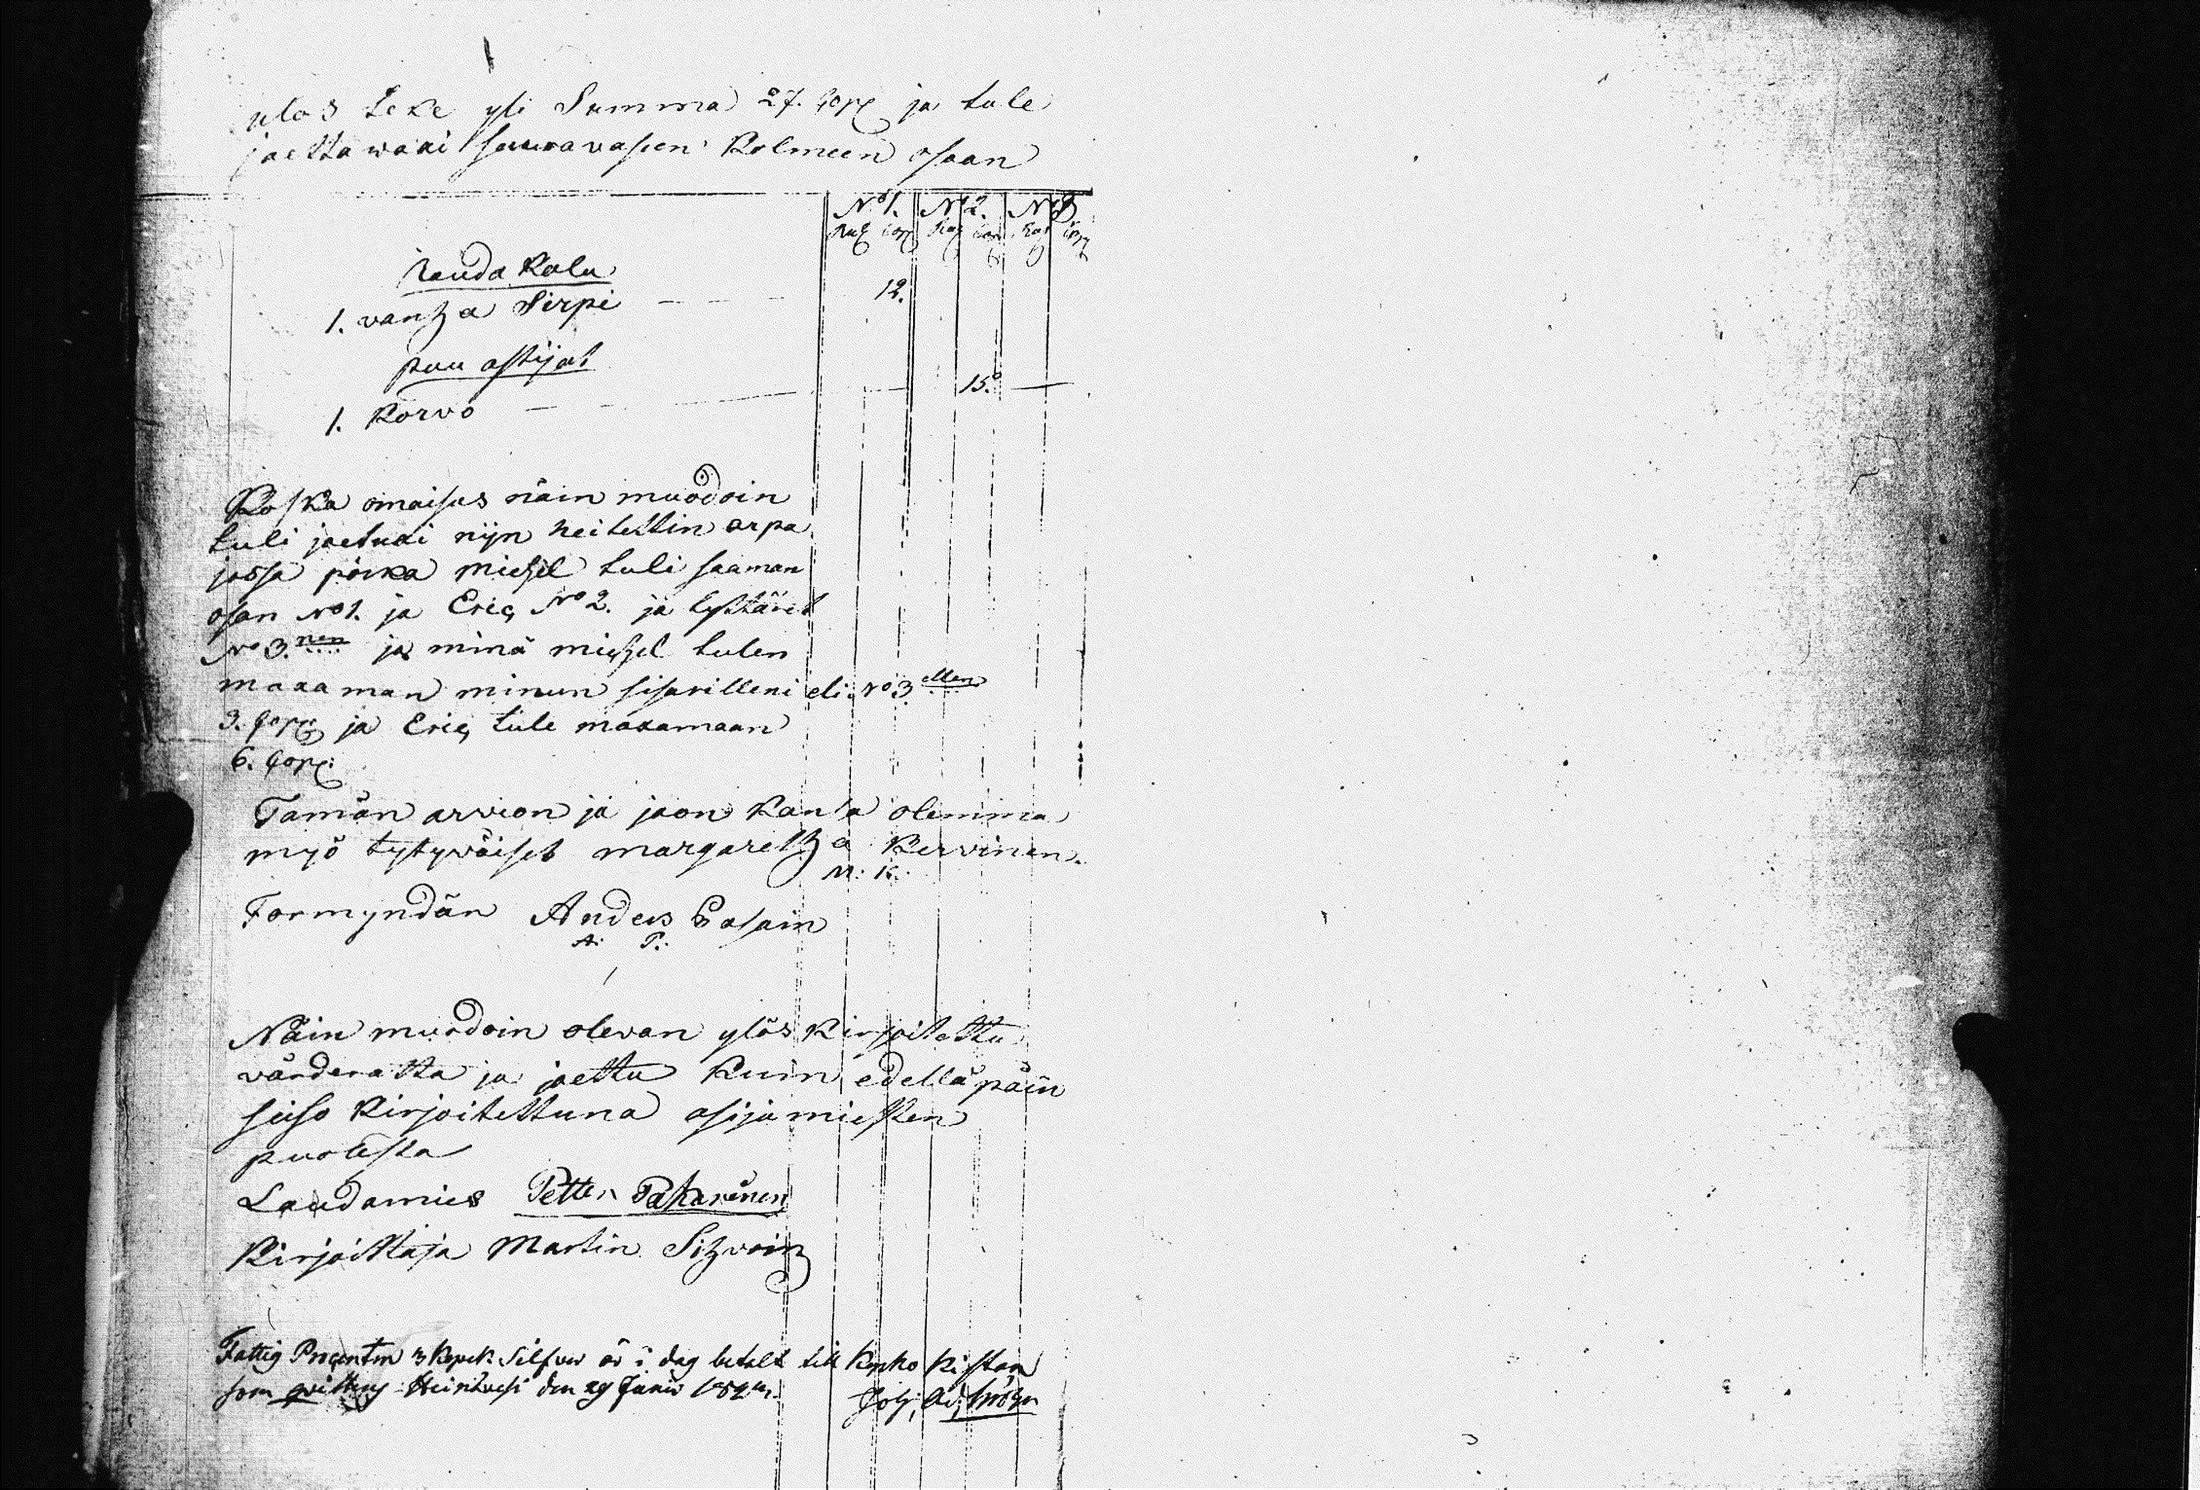 ulos teke yli Summa 27. Cop ja tule
jaettawaxi seuravasen Kolmeen osaan
No 1. No 2. No 3
Ru Cop Ru Cop Ru Cop
Rauda Kalu
1. vanha Sirpi 12.
puu astijat
1. Korvo 15.
Koska omaisus näin muodoin
tuli jaetuxi nijn heitettin arpa
jossa poika michel tuli saaman
osan No 1. ja Eric No 2. ja tyttäret
No 3.nen ja minä michel tulen
maxaman minun sisarilleni eli No 3ellen
3. Cop ja Eric tule maxamaan
6. Cop:
Tämän arvion ja jaon Kansa olemma
myö tytyväiset margaretha Kervinen.
M. K.
Formyndän Anders Pasain
A. P.
Näin muodoin olevan ylös Kirjoitettu
värderatta ja jaettu Kuin edellä päin
seiso Kirjoitettuna asijamiesten
puolesta
Laudamies Petter Pakarinen
Kirjoittaja Martin Sihvoin
Fattig Procenten 3 Kopek Silfver är i dag betalt till Kyrko Kistan
som qvitteras Heinävesi den 29 Junii